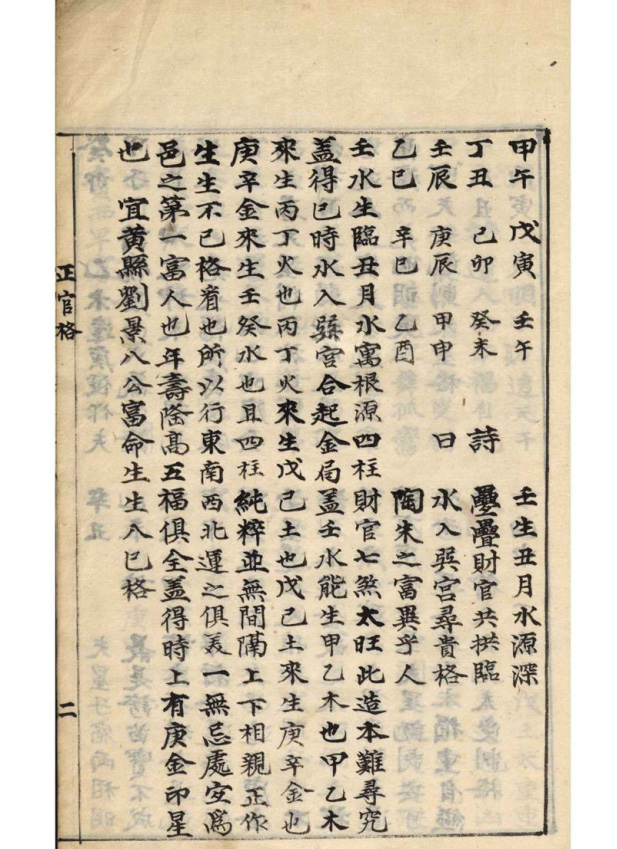 甲午 戊寅 壬午 壬生丑月水源深
丁丑 己卯 癸未 詩 疊疊財官共拱臨
壬辰 庚辰 甲申 曰 水入巽宮尋貴格
乙巳 辛巳 乙酉 陶朱之富異乎人
壬水生臨丑月水寓根源四柱財官七煞太旺此造本難尋究
盖得巳時水入巽宮合起金局盖壬水能生甲乙木也甲乙木
來生丙丁火也丙丁火來生戊己土也戊己土來生庚辛金也
庚辛金來生壬癸水也且四柱純粹並無間隔上下相親正作
生生不已格看也所以行東南西北運之俱美一無忌處宜爲
邑之第一富人也年壽隆高五福俱全盖得時上有庚金印星
也 宜黃縣劉景八公富命生生入巳格
正官格 二